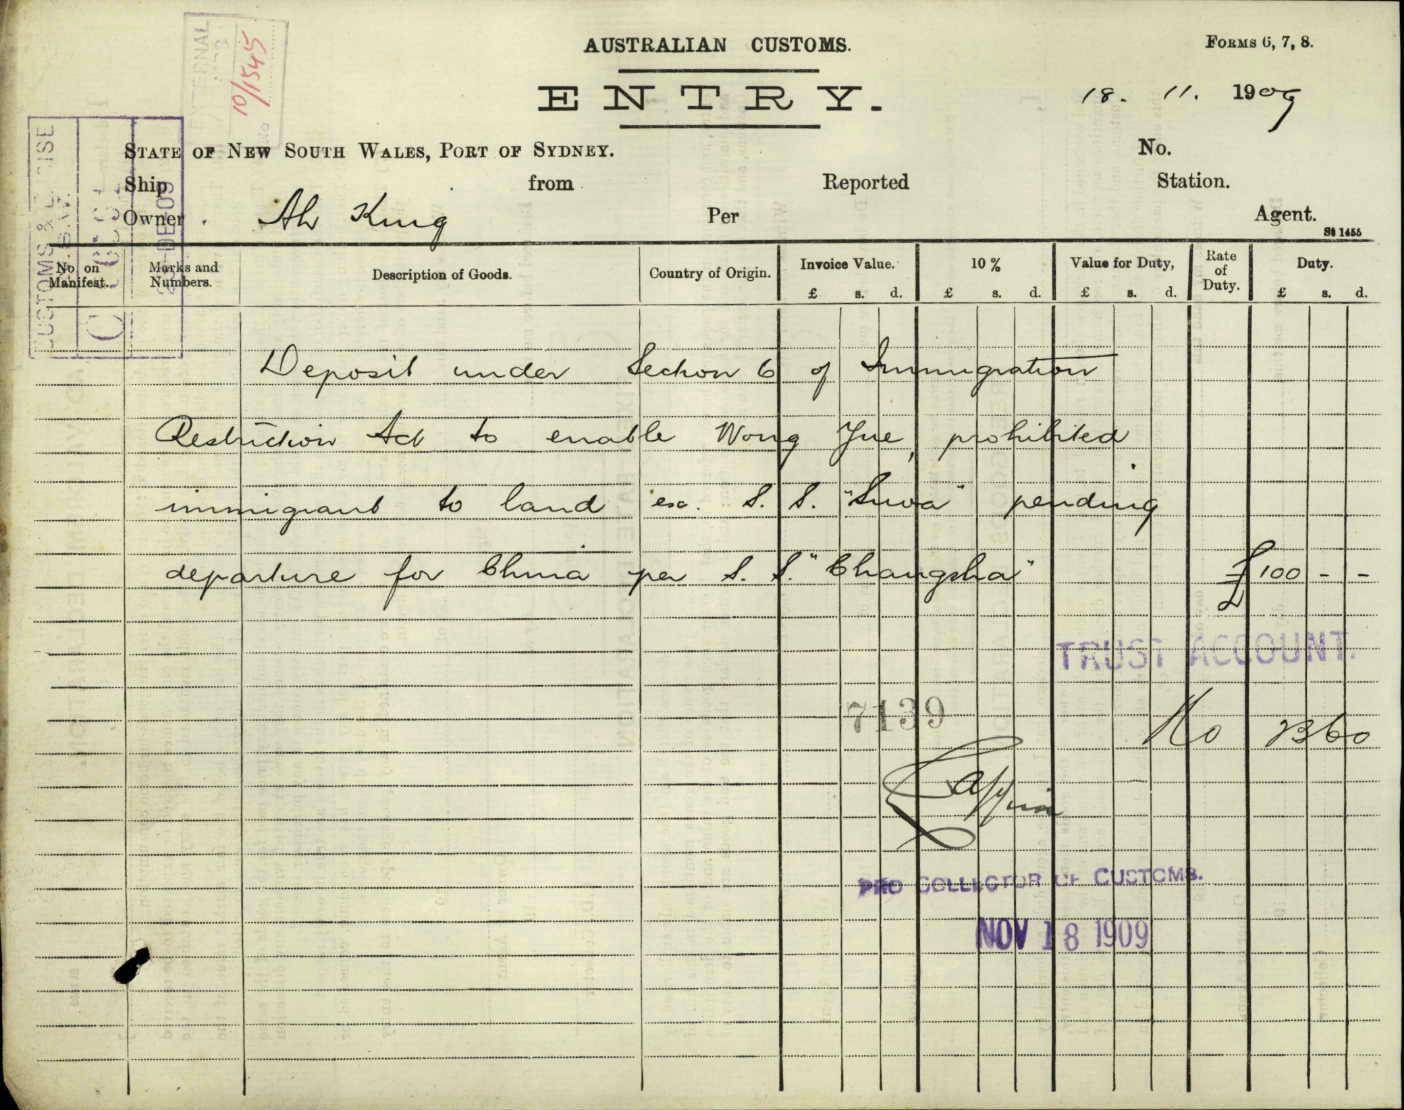 10/1545
AUSTRALIAN CUSTOMS.
FORMS 6, 7, 8.
ENTRY.
18. 11. 1909
STATE OF NEW SOUTH WALES, PORT OF SYDNEY.
No.
Ship from Reported Station.
Owner Ah King Per Agent.
St 1455
No. on Manifest. Marks and Numbers. Description of Goods. Country of Origin. Invoice Value. 10 % Value for Duty, Rate of Duty. Duty.
£ s. d. £ s. d. £ s. d. £ s. d.
Deposit under Section 6 of Immigration
Restriction Act to enable Wong Yue, prohibited
immigrant to land ex. S. S. "Suva" pending
departure for China per S. S. "Changsha" £100 - -
TRUST ACCOUNT.
7139
No 2360
PRO COLLECTOR OF CUSTOMS.
NOV 18 1909